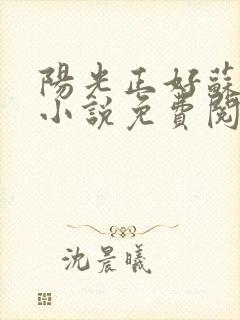 陽光正好蘇
小說免費閱
沈晨曦